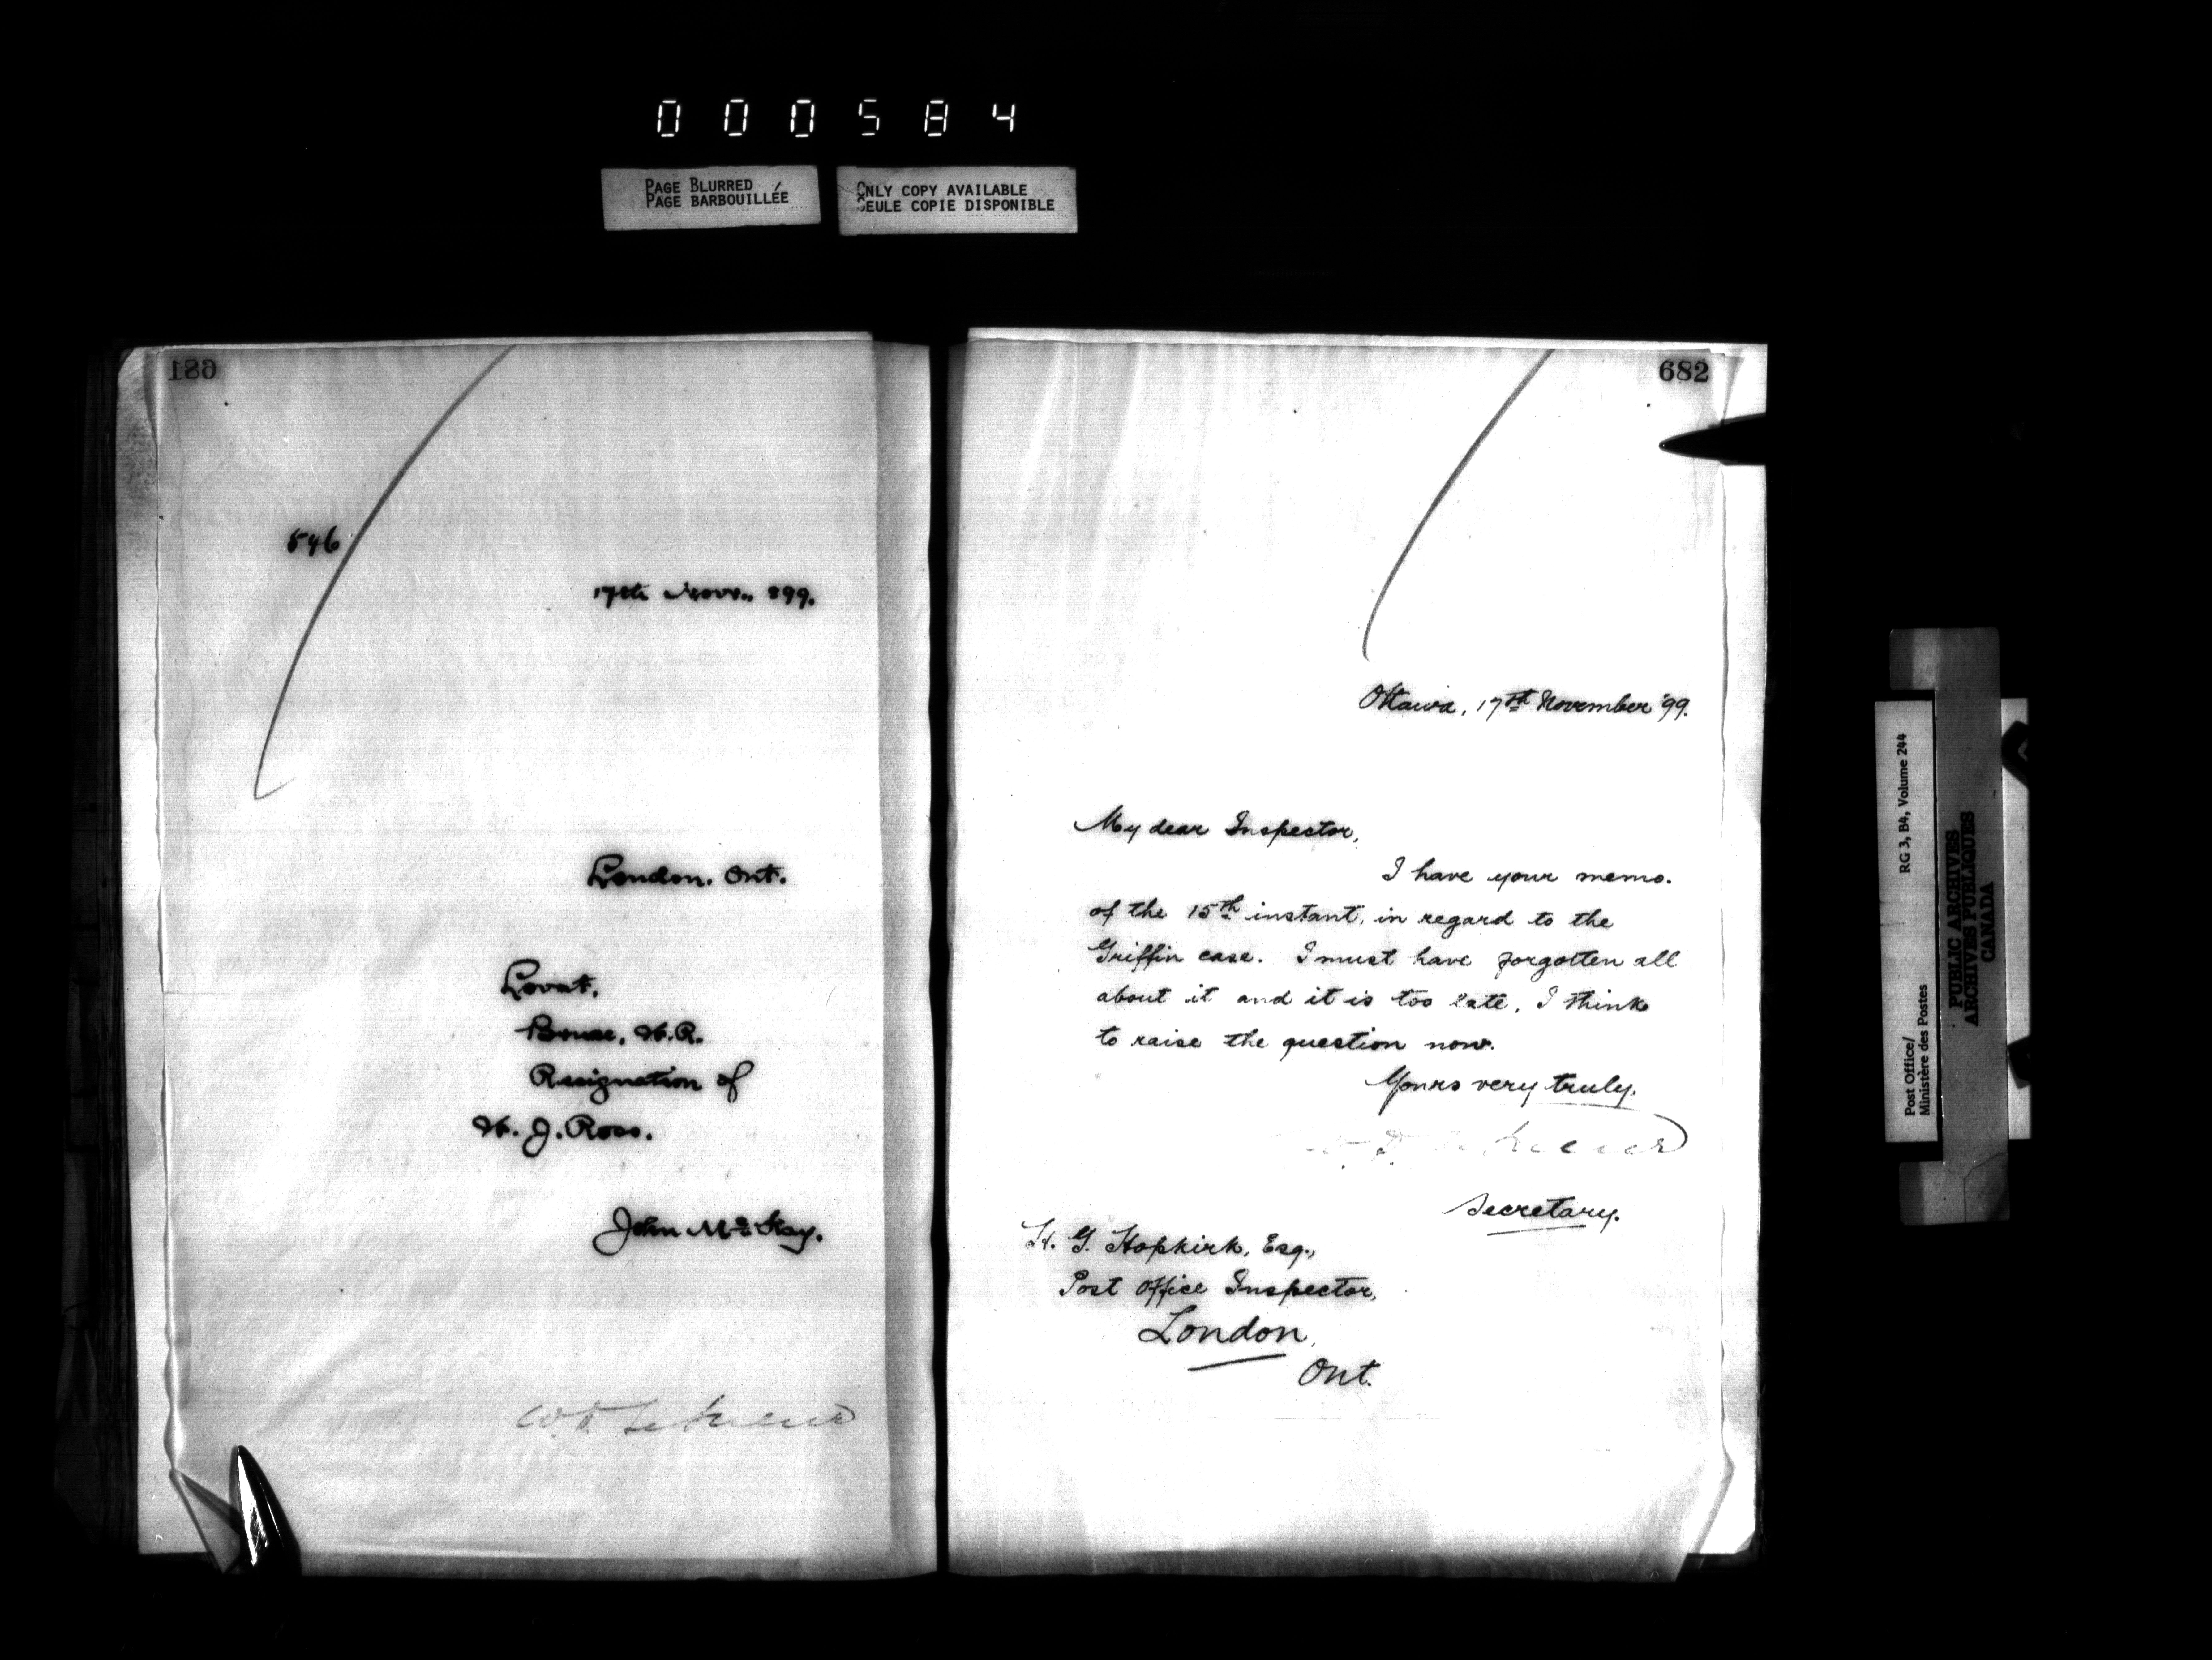 000584
PAGE BLURRED
PAGE BARBOUILLÉE
ONLY COPY AVAILABLE
SEULE COPIE DISPONIBLE
681
546
17th Novr., 899.
London. Ont.
Lovat.
Bruce, W.R.
Resignation of
W. J. Ross.
John McKay.
W. D.
682
Ottawa, 17th November '99.
My dear Inspector,
I have your memo.
of the 15th instant, in regard to the
Griffin case. I must have forgotten all
about it and it is too late, I think
to raise the question now.
Yours very truly.
Secretary.
H. G. Hopkirk, Esq.,
Post Office Inspector,
London,
Ont.
Post Office/
Ministère des Postes
RG 3, B4, Volume 244
PUBLIC ARCHIVES
ARCHIVES PUBLIQUES
CANADA